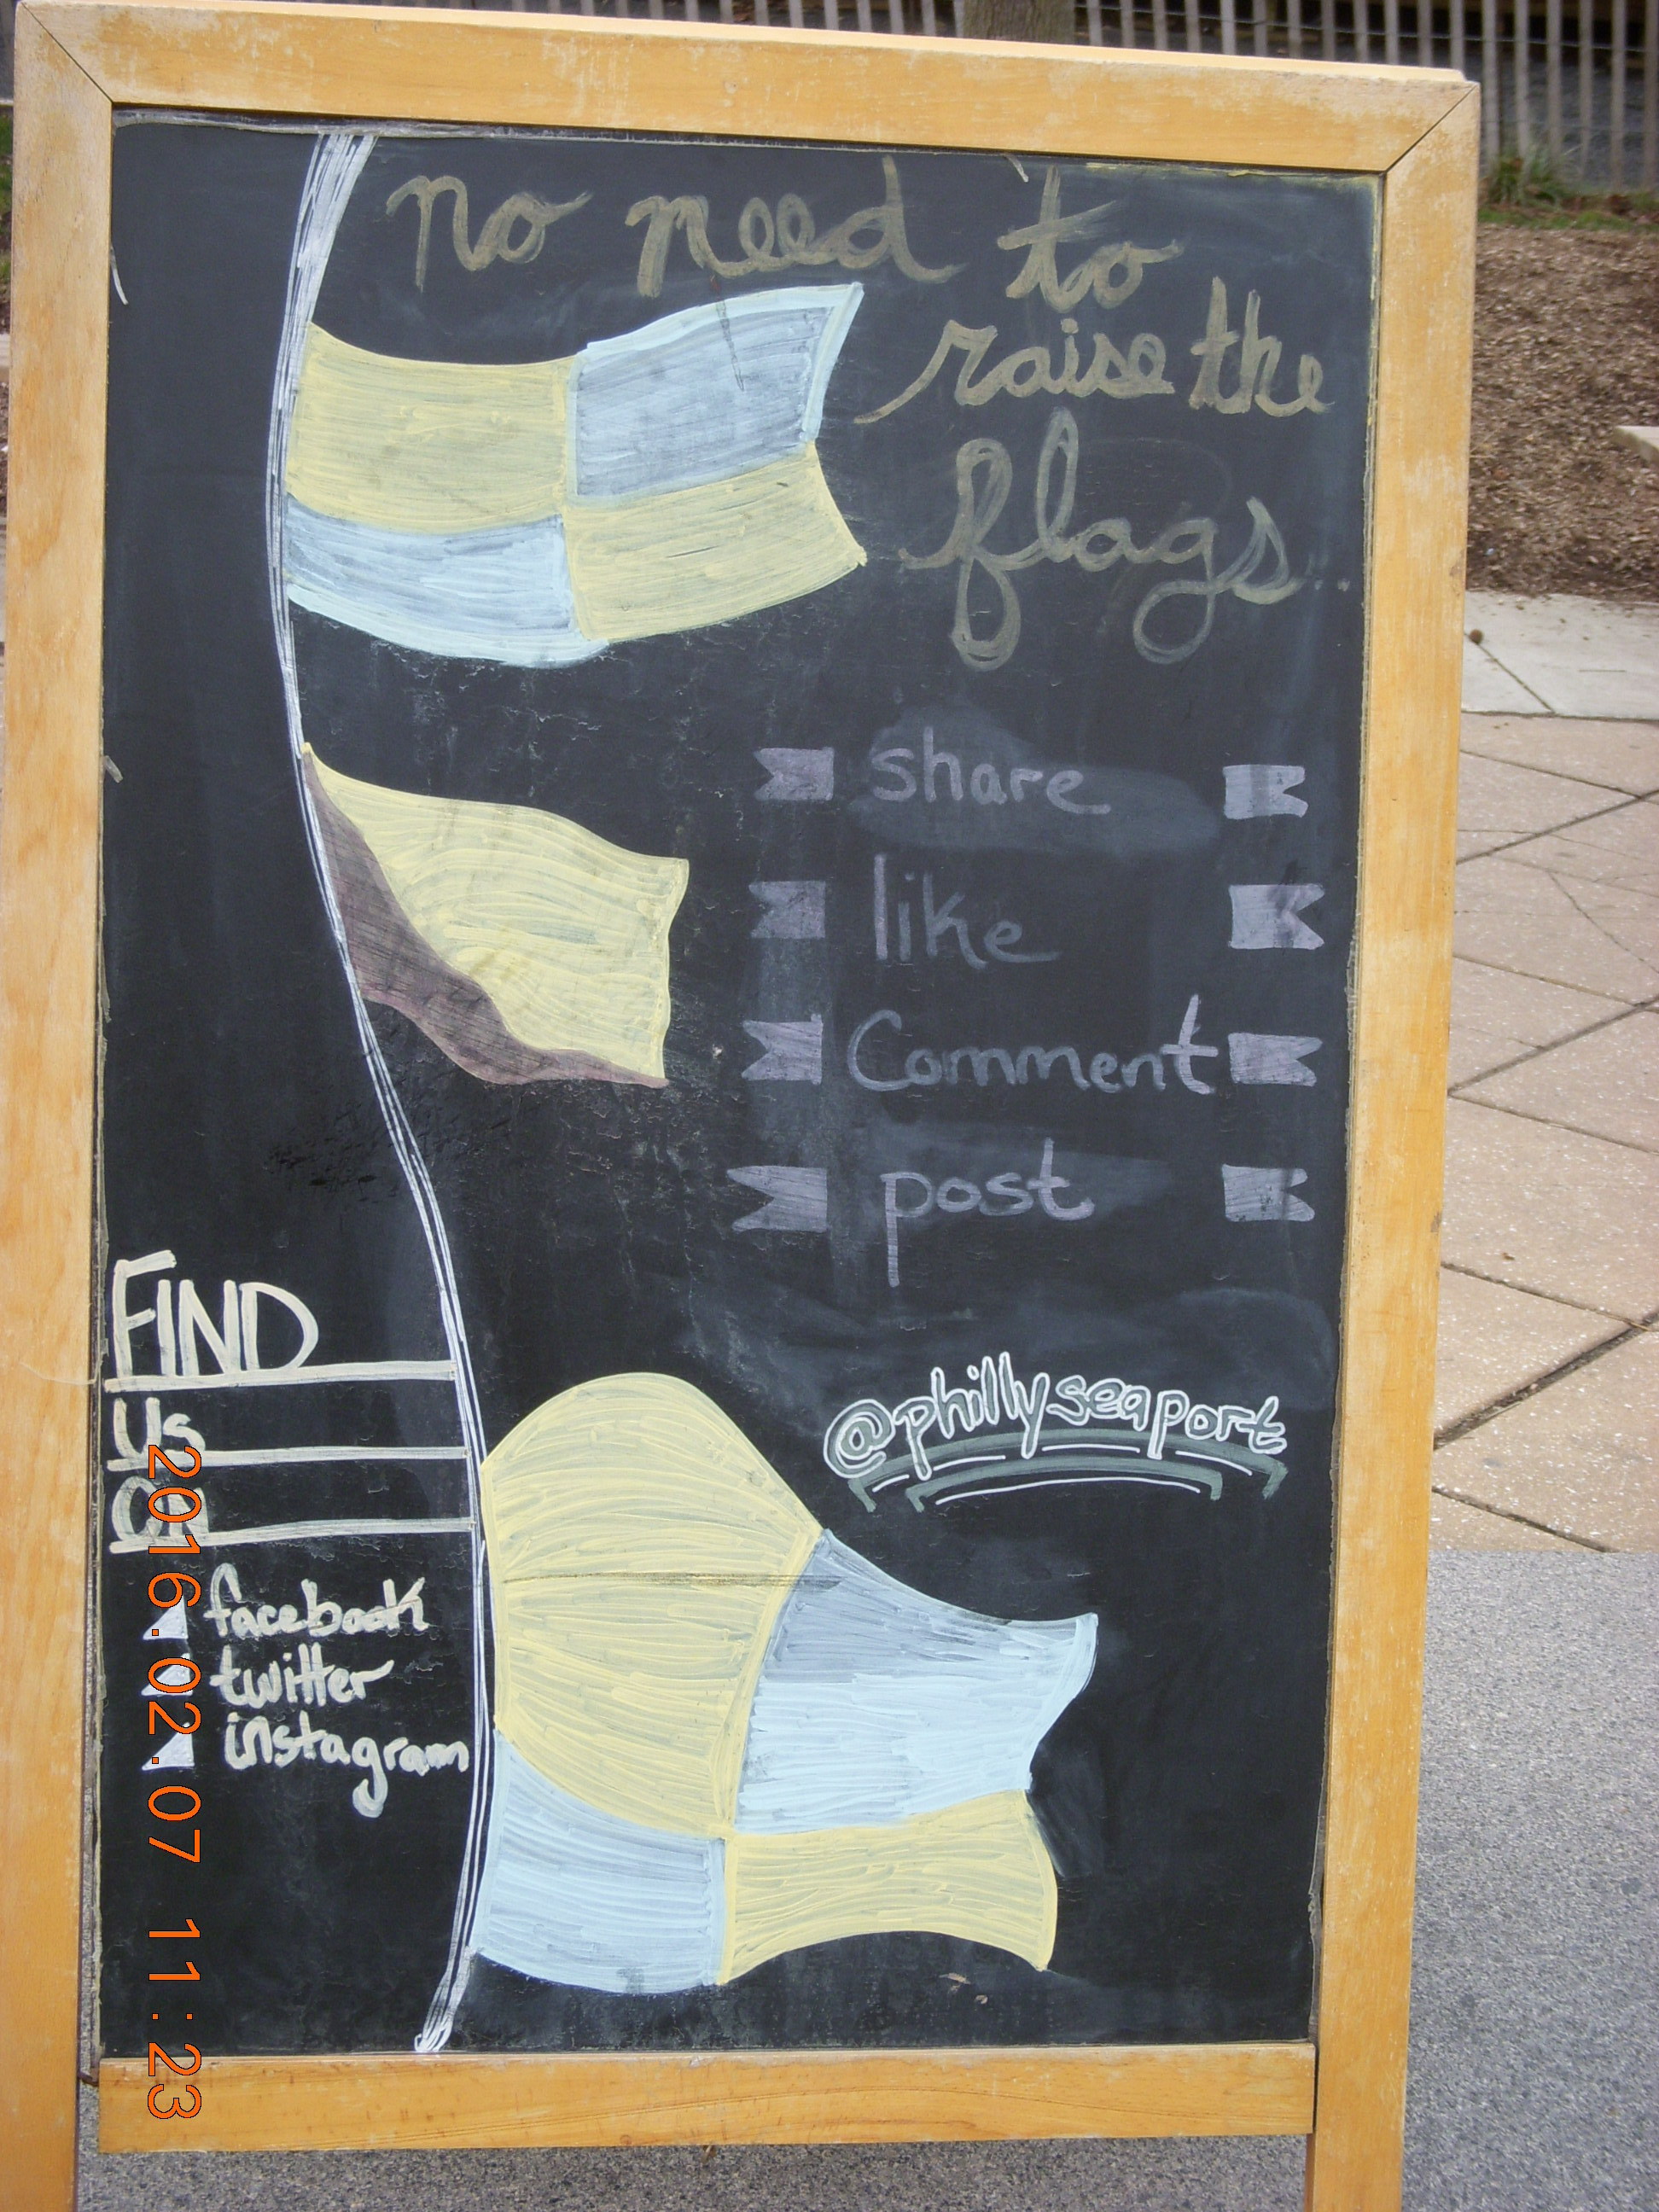 no need to
raise the
flags..
share
like
Comment
post
@phillyseaport
FIND
Us
ON
facebook
twitter
instagram
2016.02.07 11:23